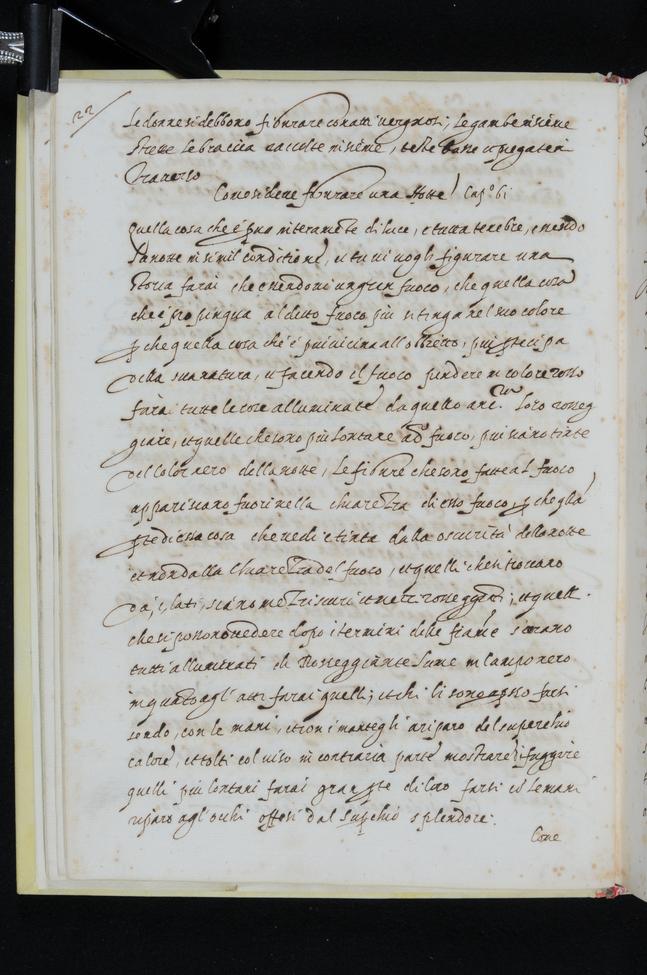 22
Le donne si debbono figurare con atti vergnosi, le gambe insieme
strette le braccia raccolte insieme, teste basse et piegate in
traverso
Come si deve figurare una Notte! Cap.º 61
Quella cosa che è priva interamente di luce, è tutta tenebre, essendo
la notte in simil conditione, et tu vi vogli figurare una
storia farai che essendovi un gran fuoco, che quella cosa
che è propinqua al detto fuoco più si tinga nel suo colore
p che quella cosa che è più vicina all obbietto, più partecipa
della sua natura, et facendo il fuoco pendere in colore rosso
farai tutte le cose alluminate da quello anc. loro rosseg
giare, et quelle che sono più lontane ad fuoco, più siano tinte
del color nero della notte, Le figure che sono fatte al fuoco
appariscano fuori nella chiarezza di esso fuoco, p che gla
pte di essa cosa che vedi è tinta dalla oscurità della notte
et non dalla chiarezza del fuoco, et quelli che si trovano
da i lati, siano mezzi scuri et mezzi rosseggianti; et quelli
che si possono vedere dopo i termini delle fiame sarano
tutti alluminati di Rosseggiante lume in campo nero
in quato agl' atti farai quelli; che li sono apsso farsi
scudo, con le mani, et con i mantegli a riparo del superchio
calore, et volti col viso in contraria parte mostrare di fuggire
quelli più lontani farai gran pte di loro farsi co le mani
riparo agl' occhi offesi dal supchio splendore.
Come